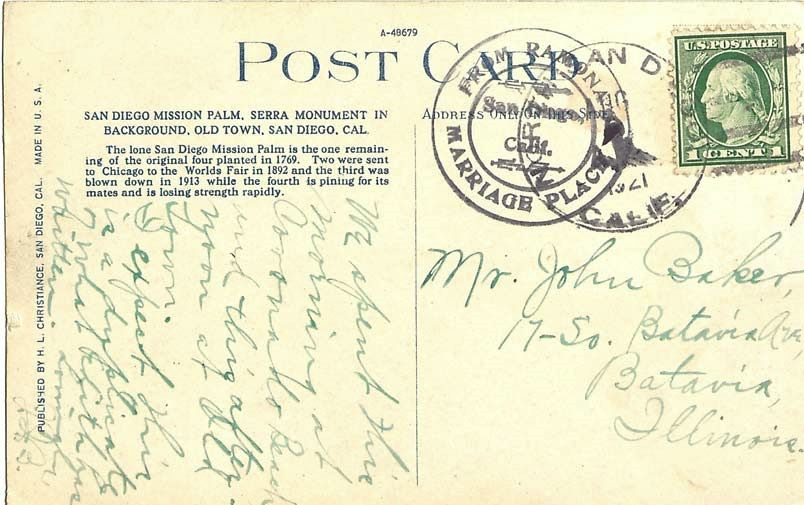 A-48679
POST CARD
SAN DIEGO MISSION PALM, SERRA MONUMENT IN
BACKGROUND, OLD TOWN, SAN DIEGO, CAL.
The lone San Diego Mission Palm is the one remain-
ing of the original four planted in 1769. Two were sent
to Chicago to the Worlds Fair in 1892 and the third was
blown down in 1913 while the fourth is pining for its
mates and is losing strength rapidly.
ADDRESS ONLY ON THIS SIDE
FROM RAMONA'S
MARRIAGE PLACE
San Diego
Calif.
SAN D
1921
CALIF.
U.S. POSTAGE
1 CENT 1
PUBLISHED BY H. L. CHRISTIANCE, SAN DIEGO, CAL. MADE IN U. S. A.
We spent this
morning at
Coronado Beach
and this after-
noon at Old
Town.
I expect this
is a duplicate
of what Edith has
written.
Mr. John Baker,
17-So. Batavia Ave,
Batavia,
Illinois.